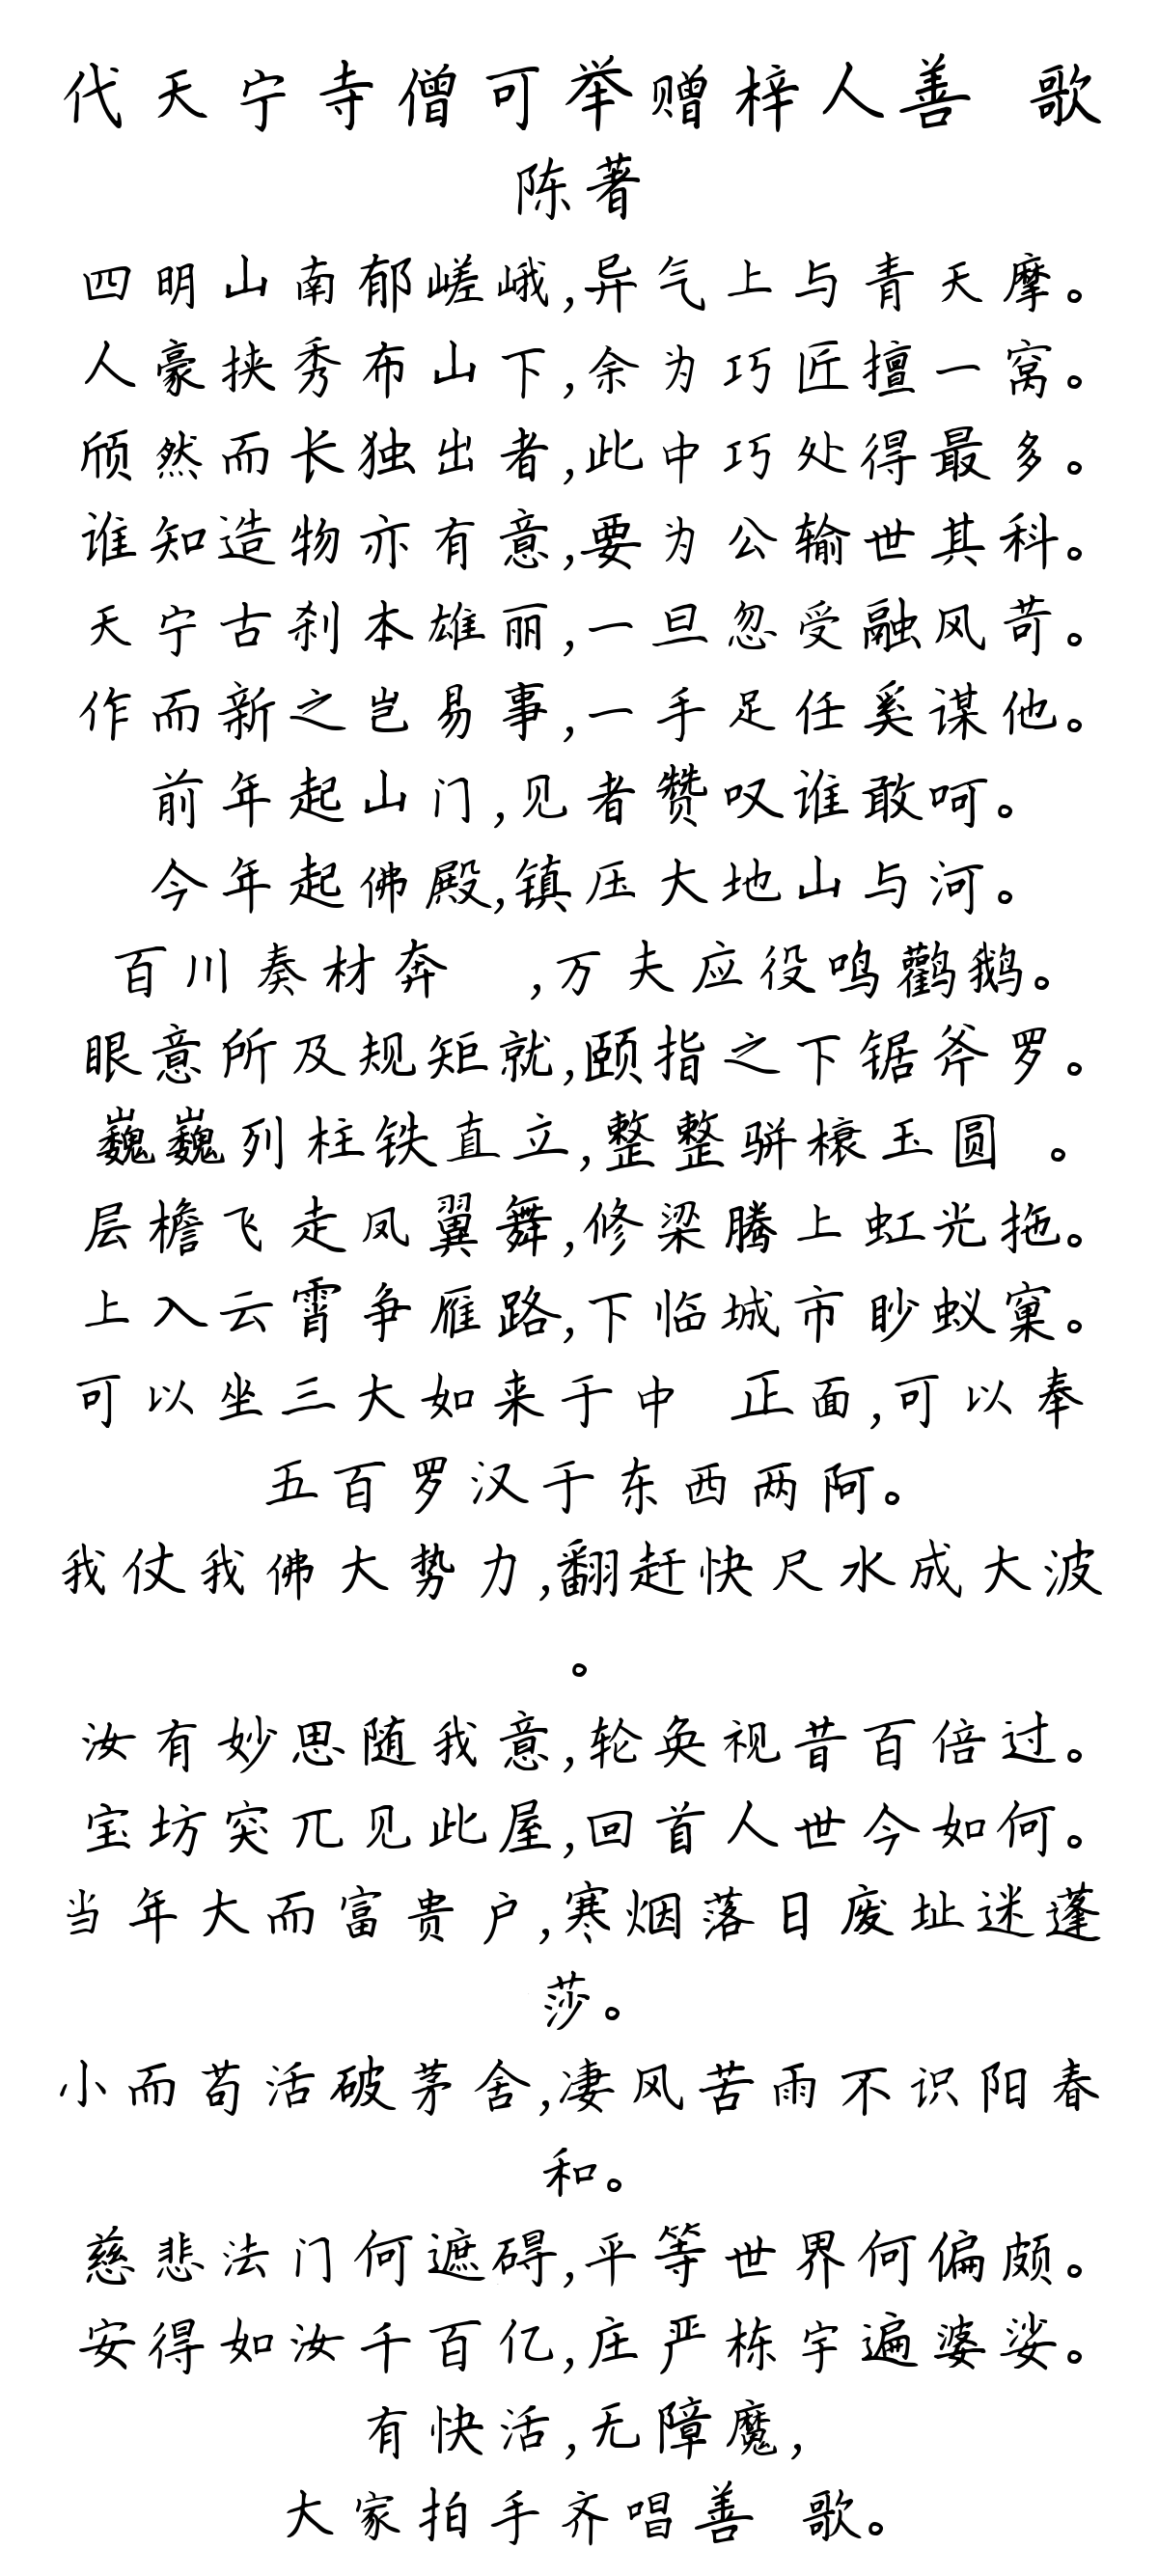 代天宁寺僧可举赠梓人善 歌
陈著
四明山南郁嵯峨,异气上与青天摩。
人豪挟秀布山下,余为巧匠擅一窝。
颀然而长独出者,此中巧处得最多。
谁知造物亦有意,要为公输世其科。
天宁古刹本雄丽,一旦忽受融风苛。
作而新之岂易事,一手足任奚谋他。
前年起山门,见者赞叹谁敢呵。
今年起佛殿,镇压大地山与河。
百川奏材奔 ,万夫应役鸣鹳鹅。
眼意所及规矩就,颐指之下锯斧罗。
巍巍列柱铁直立,整整骈榱玉圆 。
层檐飞走凤翼舞,修梁腾上虹光拖。
上入云霄争雁路,下临城市眇蚁窠。
可以坐三大如来于中 正面,可以奉
五百罗汉于东西两阿。
我仗我佛大势力,翻赶快尺水成大波
。
汝有妙思随我意,轮奂视昔百倍过。
宝坊突兀见此屋,回首人世今如何。
当年大而富贵户,寒烟落日废址迷蓬
莎。
小而苟活破茅舍,凄风苦雨不识阳春
和。
慈悲法门何遮碍,平等世界何偏颇。
安得如汝千百亿,庄严栋宇遍婆娑。
有快活,无障魔,
大家拍手齐唱善 歌。